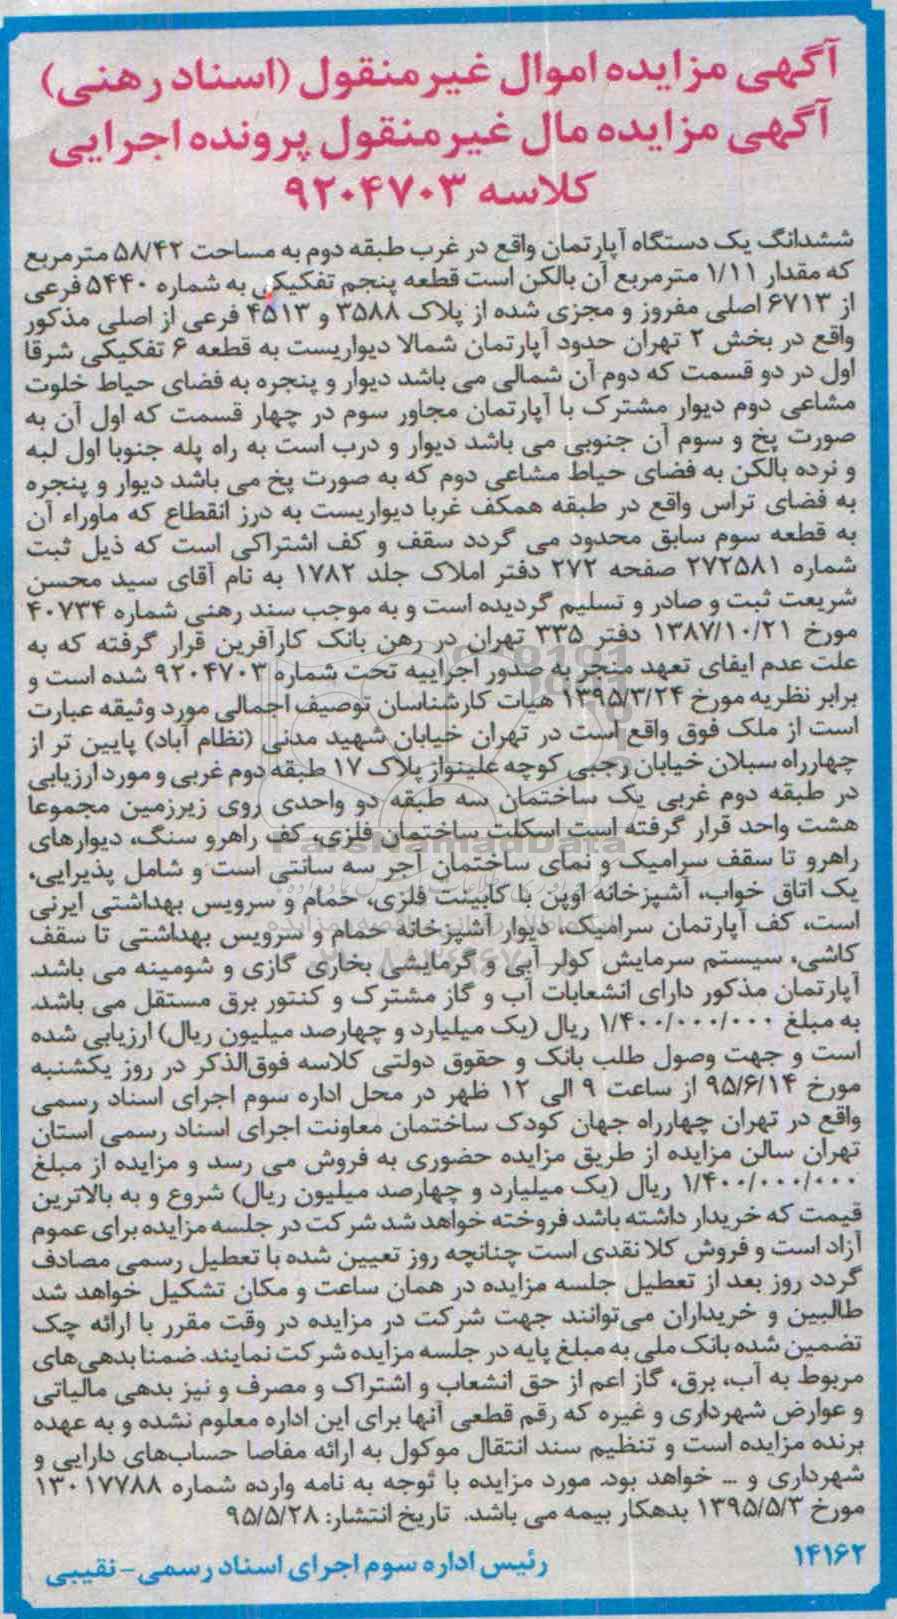 آگهی مزایده اموال غیرمنقول (اسناد رهنی)
آگهی مزایده مال غیرمنقول پرونده اجرایی
کلاسه ۹۲۰۴۷۰۳
ششدانگ یک دستگاه آپارتمان واقع در غرب طبقه دوم به مساحت ۵۸/۴۲ مترمربع
که مقدار ۱/۱۱ مترمربع آن بالکن است قطعه پنجم تفکیکی به شماره ۵۴۴۰ فرعی
از ۶۷۱۳ اصلی مفروز و مجزی شده از پلاک ۳۵۸۸ و ۴۵۱۳ فرعی از اصلی مذکور
واقع در بخش ۲ تهران حدود آپارتمان شمالا دیواریست به قطعه ۶ تفکیکی شرقا
اول در دو قسمت که دوم آن شمالی می باشد دیوار و پنجره به فضای حیاط خلوت
مشاعی دوم دیوار مشترک با آپارتمان مجاور سوم در چهار قسمت که اول آن به
صورت پخ و سوم آن جنوبی می باشد دیوار و درب است به راه پله جنوبا اول لبه
و نرده بالکن به فضای حیاط مشاعی دوم که به صورت پخ می باشد دیوار و پنجره
به فضای تراس واقع در طبقه همکف غربا دیواریست به درز انقطاع که ماوراء آن
به قطعه سوم سابق محدود می گردد سقف و کف اشتراکی است که ذیل ثبت
شماره ۲۷۲۵۸۱ صفحه ۲۷۲ دفتر املاک جلد ۱۷۸۲ به نام آقای سید محسن
شریعت ثبت و صادر و تسلیم گردیده است و به موجب سند رهنی شماره ۴۰۷۳۴
مورخ ۱۳۸۷/۱۰/۲۱ دفتر ۳۳۵ تهران در رهن بانک کارآفرین قرار گرفته که به
علت عدم ایفای تعهد منجر به صدور اجراییه تحت شماره ۹۲۰۴۷۰۳ شده است و
برابر نظریه مورخ ۱۳۹۵/۳/۲۴ هیات کارشناسان توصیف اجمالی مورد وثیقه عبارت
است از ملک فوق واقع است در تهران خیابان شهید مدنی (نظام آباد) پایین تر از
چهارراه سبلان خیابان رجبی کوچه علینواز پلاک ۱۷ طبقه دوم غربی و مورد ارزیابی
در طبقه دوم غربی یک ساختمان سه طبقه دو واحدی روی زیرزمین مجموعا
هشت واحد قرار گرفته است اسکلت ساختمان فلزی، کف راهرو سنگ، دیوارهای
راهرو تا سقف سرامیک و نمای ساختمان آجر سه سانتی است و شامل پذیرایی،
یک اتاق خواب، آشپزخانه اوپن با کابینت فلزی، حمام و سرویس بهداشتی ایرنی
است، کف آپارتمان سرامیک، دیوار آشپزخانه حمام و سرویس بهداشتی تا سقف
کاشی، سیستم سرمایش کولر آبی و گرمایشی بخاری گازی و شومینه می باشد.
آپارتمان مذکور دارای انشعابات آب و گاز مشترک و کنتور برق مستقل می باشد.
به مبلغ ۱/۴۰۰/۰۰۰/۰۰۰ ریال (یک میلیارد و چهارصد میلیون ریال) ارزیابی شده
است و جهت وصول طلب بانک و حقوق دولتی کلاسه فوق‌الذکر در روز یکشنبه
مورخ ۹۵/۶/۱۴ از ساعت ۹ الی ۱۲ ظهر در محل اداره سوم اجرای اسناد رسمی
واقع در تهران چهارراه جهان کودک ساختمان معاونت اجرای اسناد رسمی استان
تهران سالن مزایده از طریق مزایده حضوری به فروش می رسد و مزایده از مبلغ
۱/۴۰۰/۰۰۰/۰۰۰ ریال (یک میلیارد و چهارصد میلیون ریال) شروع و به بالاترین
قیمت که خریدار داشته باشد فروخته خواهد شد شرکت در جلسه مزایده برای عموم
آزاد است و فروش کلا نقدی است چنانچه روز تعیین شده با تعطیل رسمی مصادف
گردد روز بعد از تعطیل جلسه مزایده در همان ساعت و مکان تشکیل خواهد شد
طالبین و خریداران می‌توانند جهت شرکت در مزایده در وقت مقرر با ارائه چک
تضمین شده بانک ملی به مبلغ پایه در جلسه مزایده شرکت نمایند. ضمنا بدهی‌های
مربوط به آب، برق، گاز اعم از حق انشعاب و اشتراک و مصرف و نیز بدهی مالیاتی
و عوارض شهرداری و غیره که رقم قطعی آنها برای این اداره معلوم نشده و به عهده
برنده مزایده است و تنظیم سند انتقال موکول به ارائه مفاصا حساب‌های دارایی و
شهرداری و ... خواهد بود. مورد مزایده با توجه به نامه وارده شماره ۱۳۰۱۷۷۸۸
مورخ ۱۳۹۵/۵/۳ بدهکار بیمه می باشد. تاریخ انتشار: ۹۵/۵/۲۸
۱۴۱۶۲ رئیس اداره سوم اجرای اسناد رسمی - نقیبی
ParsNamadData